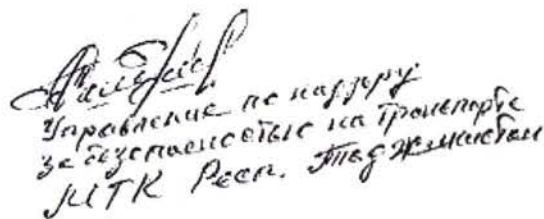 Управление по надзору
за безопасностью на транспорте
МТК Респ. Таджикистан